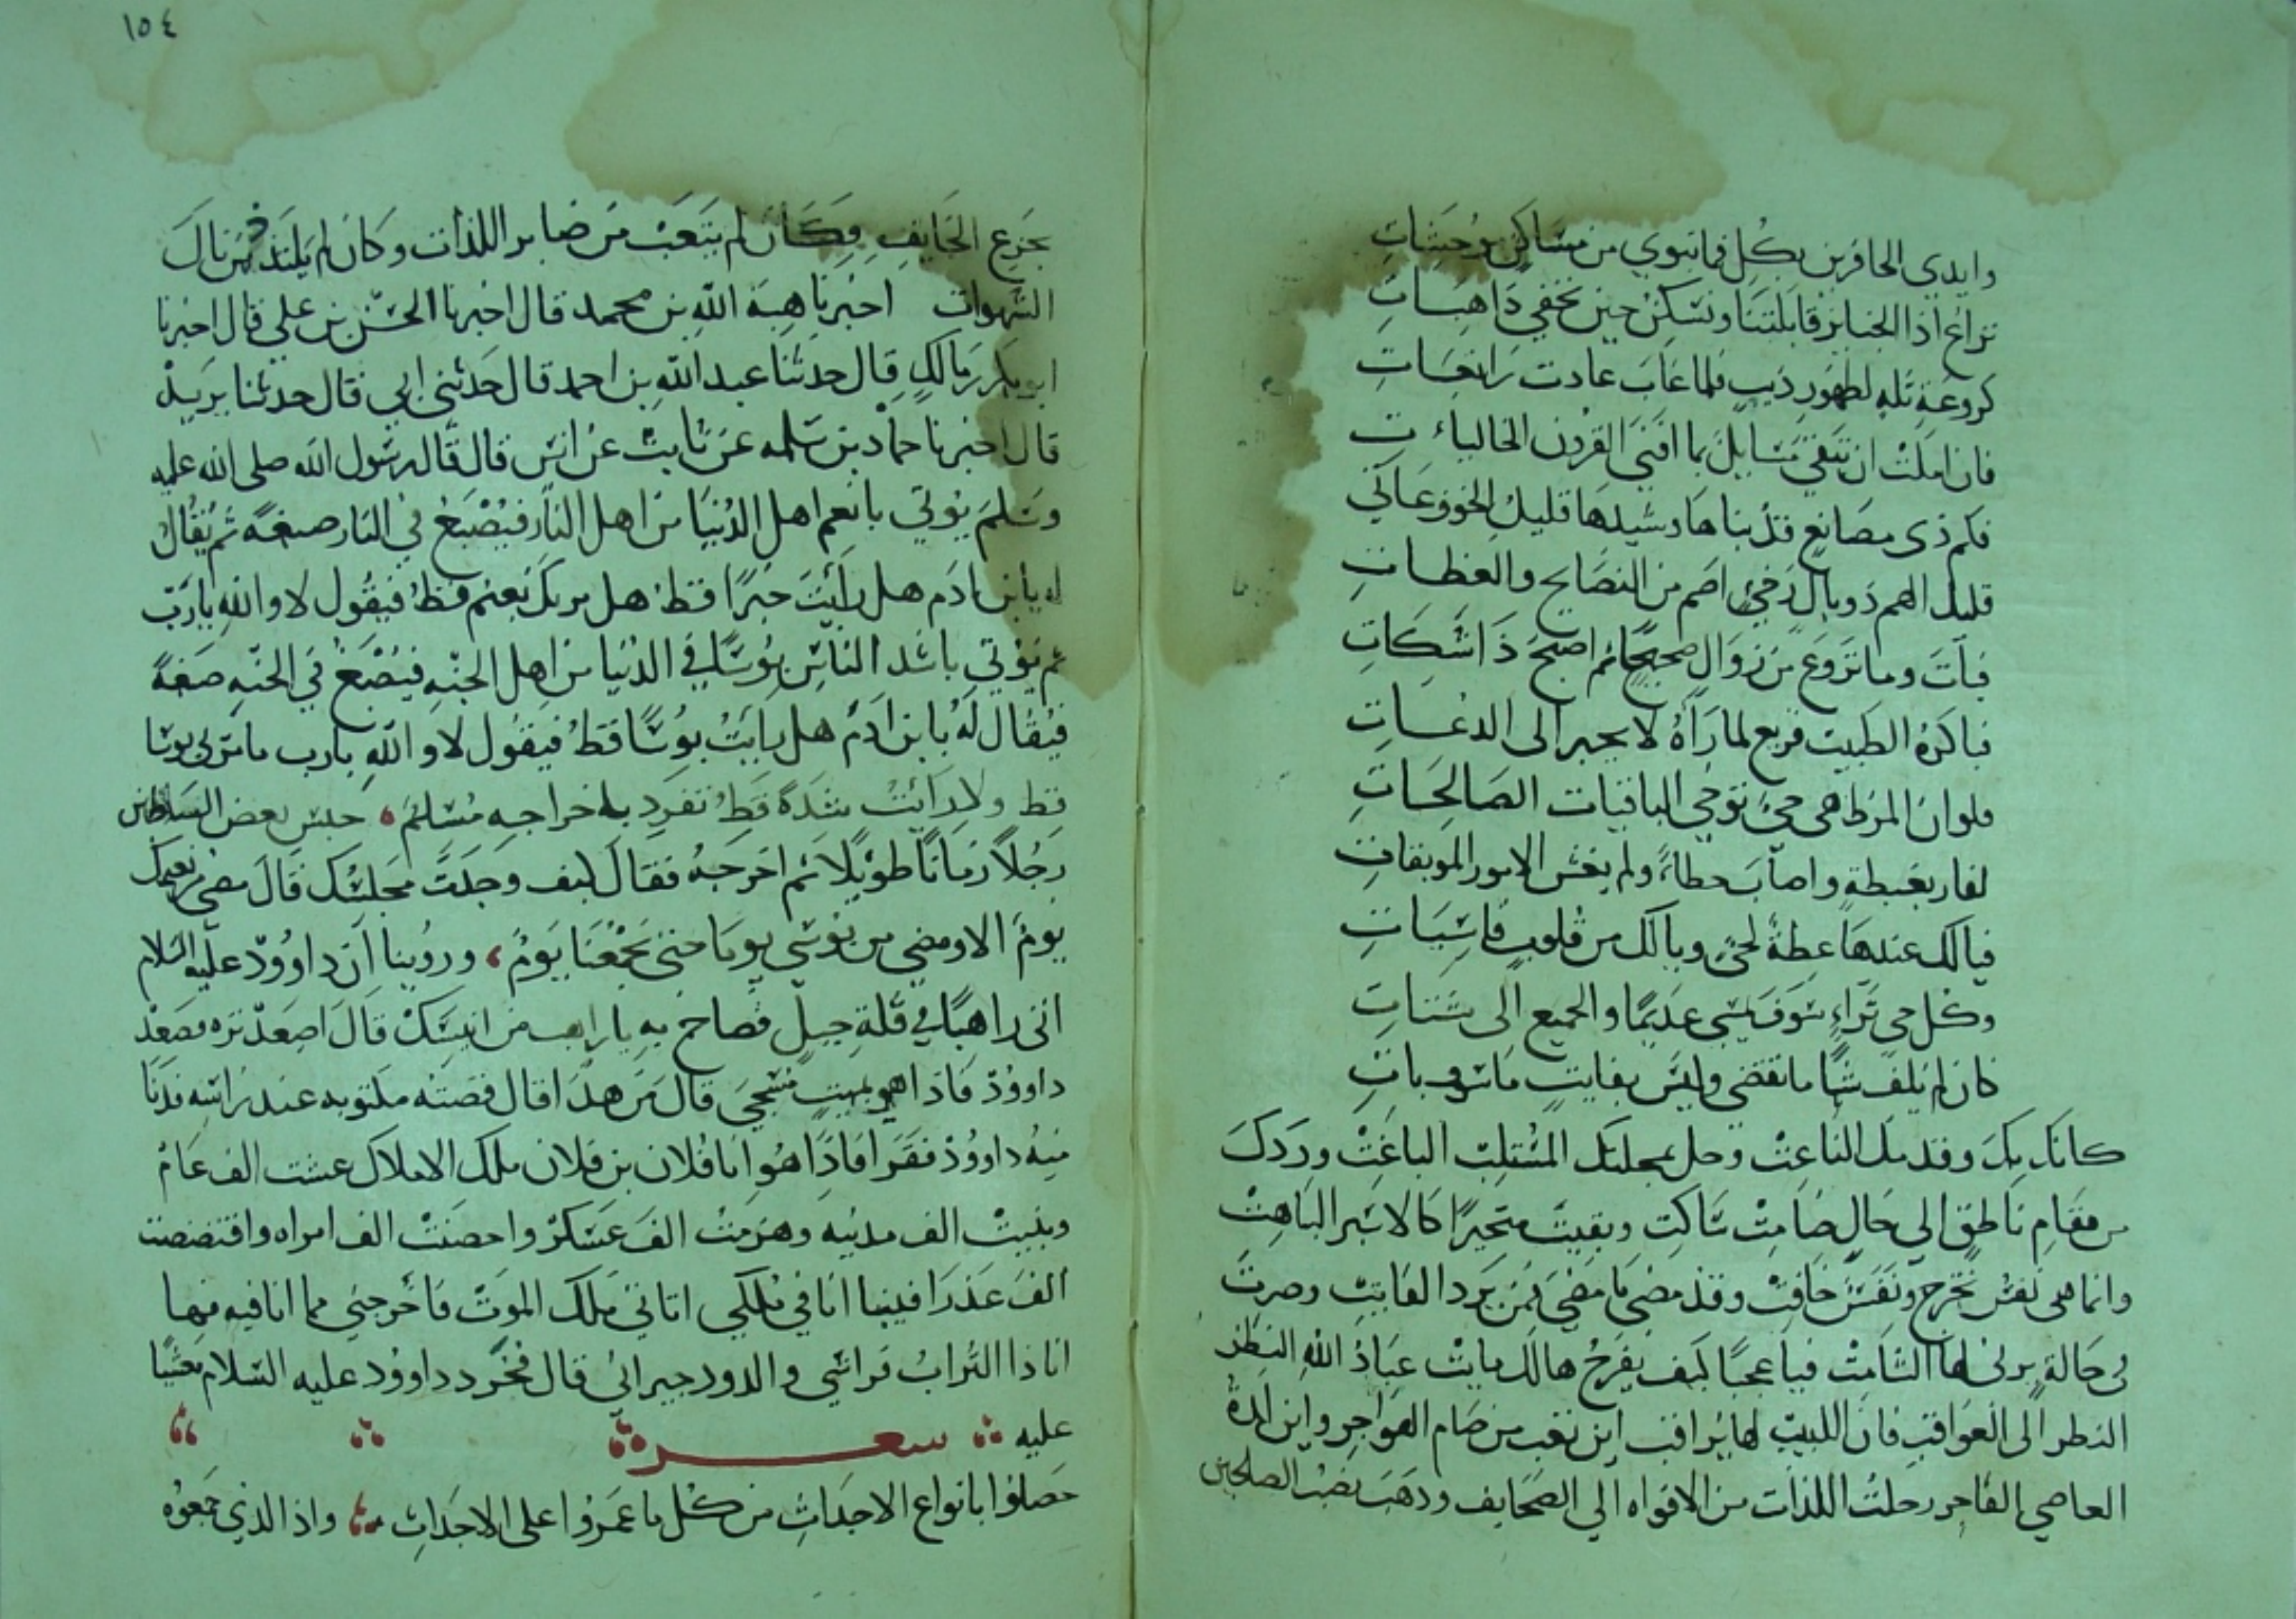 وايدي الحافرين بكل فما تنوي من مساكن موحشات
نراع اذا الجنايز قابلتنا ونسكن حين تخفي ذاهبات
كروعة ثلة لظهور ذيب فلما غاب عادت راتعات
فان املت ان تبقي فسايل بما افنى القرون الخاليات
فكم ذى مصانع قد بناها وشيدها قليل الخوف عاتي
قليل الهم ذو بال رخي اصم من النصايح والعظات
فبات وما تروع من زوال صحيحا ثم اصبح ذا شكات
فباكره الطبيب فريع لما راه لا يحير الى الدعات
فلو ان المرظاهي حي توخي الباقيات الصالحات
لفاز بغبطة واصاب حظا ولم يغش الامور الموبقات
فيالك عندها عظة لحي ويالك من قلوب قاسيات
وكل حي تراء سوف يمسي عديما والجميع الى شتات
كان لم يلف شيا ما تقضي وليس بفايت ما سوف يات
كانك بك وقد مل الناعت وحل بمجلسك المستلب الباغت وردك
من مقام ناطق الي حال صامت ساكت وبقيت متحيرا كالاسير الباهت
وانما هى نفس تخرج ونفس خافت وقد مضى ما مضي فمن يرد الفايت وصرت
فى حالة يرثى لها الشامت فيا عجبا كيف يفرح هالك مايت عباد الله النظر
النظر الى العواقب فان اللبيب لها يراقب اين تعب من صام الهواجر واين لذة
العاصي الفاجر رحلت اللذات من الافواه الي الصحايف وذهب نصب الصالحين
١٥٤
بجزع الخايف فكان لم يتعب من صابر اللذات وكان لم يلتذ من نال
الشهوات اخبرنا هبة الله بن محمد قال اخبرنا الحسن بن علي قال اخبرنا
ابو بكر بن مالك قال حدثنا عبد الله بن احمد قال حدثني ابي قال حدثنا يزيد
قال اخبرنا حماد بن سلمه عن ثابت عن انس قال قال رسول الله صلى الله عليه
وسلم يوتي بانعم اهل الدنيا من اهل النار فيصبغ في النار صبغة ثم يقال
له يا بن ادم هل رايت خيرا قط هل مر بك نعيم قط فيقول لا والله يا رب
ثم يؤتي باشد الناس بوسا في الدنيا من اهل الجنه فيصبغ في الجنه صبغة
فيقال له يا بن ادم هل رايت بوسا قط فيقول لا والله يا رب ما مر بي بوسا
قط ولا رايت شدة قط تفرد باخراجه مسلم حبس بعض السلاطين
رجلا زمانا طويلا ثم اخرجه فقال كيف وجدت محبسك قال مضي من نعيمك
يوم الا ومضي من بوسي يوما حتى يجمعنا يوم وروينا ان داوود عليه السلام
اتى راهبا في قلة جبل فصاح به يا راهب من انيسك قال اصعد تره فصعد
داوود فاذا هو بميت مسجي قال من هذا قال قصته مكتوبه عند راسه فدنا
منه داوود فقرا فاذا هو انا فلان بن فلان ملك الاملاك عشت الف عام
وبنيت الف مدينه وهزمت الف عسكر واحصنت الف امراه وافتضضت
الف عذرا فبينا انا في ملكي اتاني ملك الموت فاخرجني مما انا فيه فها
انا ذا التراب فراشي والدود جيراني قال فخر داوود عليه السلام مغشيا
عليه شعر
حصلوا بانواع الاجداث من كل ما عمروا على الاجداث واذا الذي جمعوه